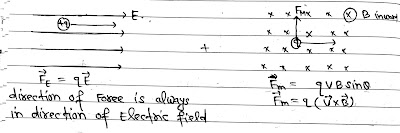 +q
E
+
Fm
B inward
F⃗E = qE⃗
direction of Force is always
in direction of Electric field
F⃗m = qVB sinθ
F⃗m = q(V⃗×B⃗)